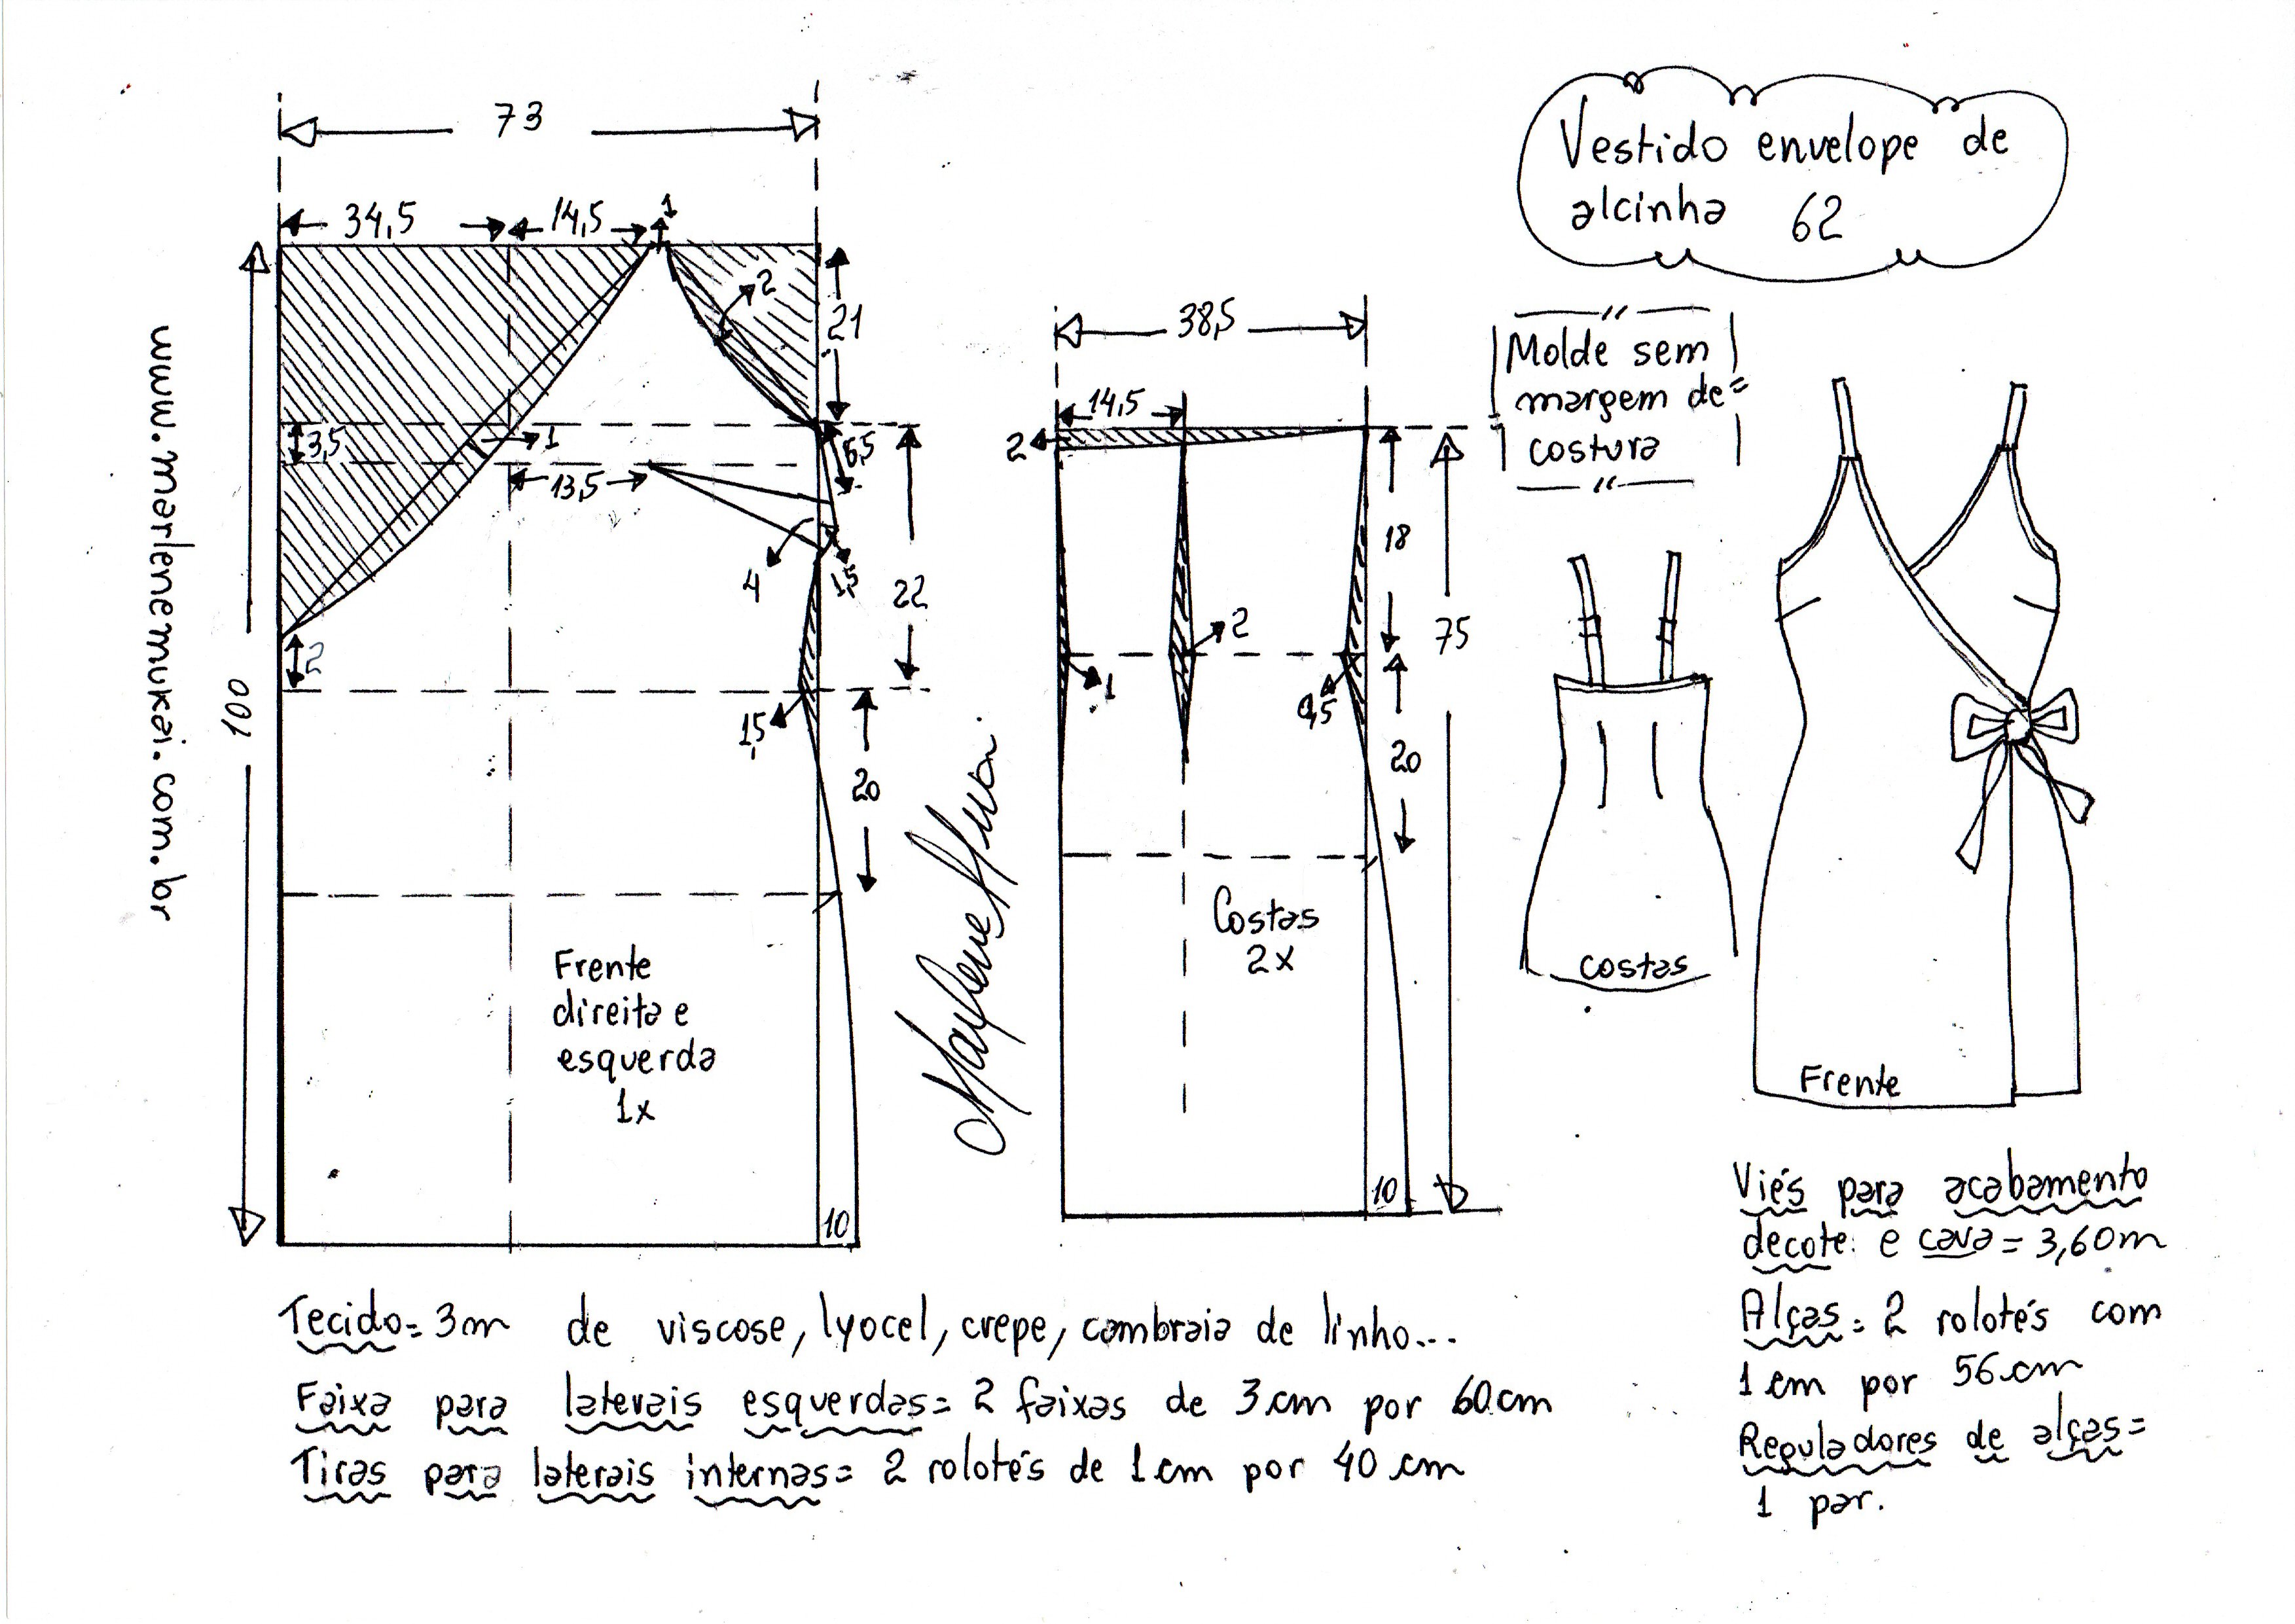 Vestido envelope de
alcinha 62
Molde sem
margem de=
costura
www.marlenemukai.com.br
73
34,5
14,5
1
2
21
3,5
1
13,5
6,5
4
1,5
22
2
1,5
20
100
Frente
direita e
esquerda
1x
10
38,5
14,5
2
18
75
2
1
0,5
20
Costas
2x
10
costas
Frente
Tecido= 3m de viscose, lyocel, crepe, cambraia de linho...
Faixa para laterais esquerdas= 2 faixas de 3cm por 60cm
Tiras para laterais internas= 2 rolotés de 1cm por 40 cm
Viés para acabamento
decote: e cava= 3,60m
Alças= 2 rolotés com
1 cm por 56cm
Reguladores de alças=
1 par.